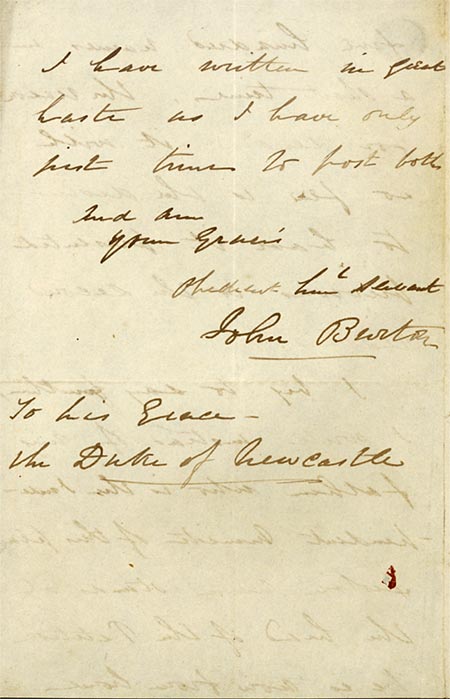 I have written in great
haste as I have only
just time to post both
And am
Your Grace's
Obedient hum^l Servant
John Burton
To his Grace -
the Duke of Newcastle